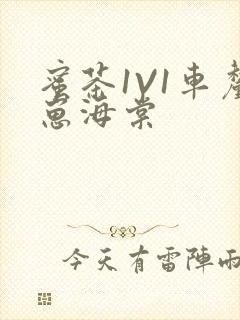 蜜茶1V1車釐
崽海棠
今天有雷陣雨